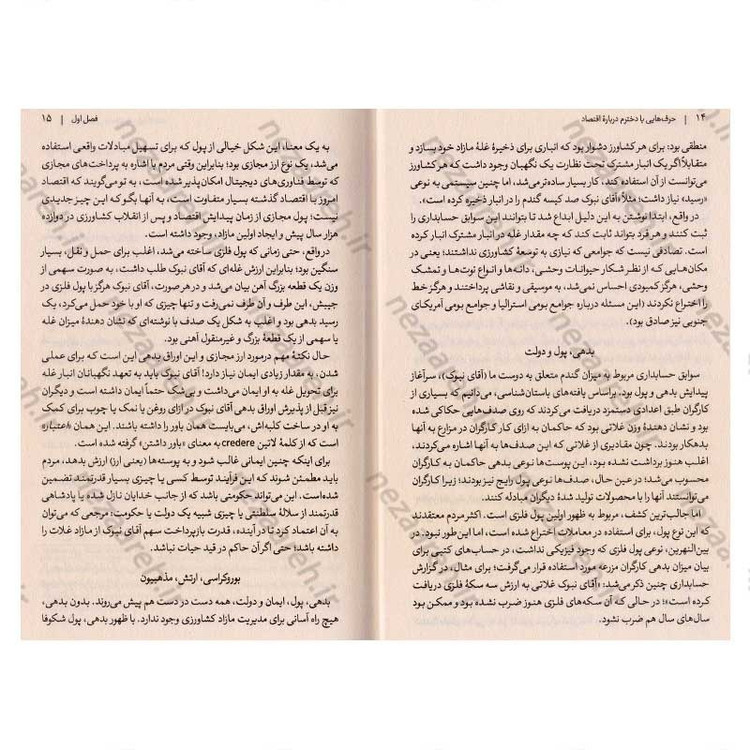 ۱۴ | حرف‌هایی با دخترم دربارهٔ اقتصاد
منطقی بود: برای هر کشاورز دشوار بود که انباری برای ذخیرهٔ غلهٔ مازاد خود بسازد و
متقابلاً اگر یک انبار مشترک تحت نظارت یک نگهبان وجود داشت که هر کشاورز
می‌توانست از آن استفاده کند، کار بسیار ساده‌تر می‌شد، اما چنین سیستمی به نوعی
«رسید» نیاز داشت؛ مثلاً «آقای نبوک صد کیسه گندم را در انبار ذخیره کرده است».
در واقع، ابتدا نوشتن به این دلیل ابداع شد تا بتوانند این سوابق حسابداری را
ثبت کنند و هر فرد بتواند ثابت کند که چه مقدار غله در انبار مشترک انبار کرده
است. تصادفی نیست که جوامعی که نیازی به توسعهٔ کشاورزی نداشتند؛ یعنی در
مکان‌هایی که از نظر شکار حیوانات وحشی، دانه‌ها و انواع توت‌ها و تمشک
وحشی، هرگز کمبودی احساس نمی‌شد، به موسیقی و نقاشی پرداختند و هرگز خط
را اختراع نکردند (این مسئله درباره جوامع بومی استرالیا و جوامع بومی آمریکای
جنوبی نیز صادق بود).
بدهی، پول و دولت
سوابق حسابداری مربوط به میزان گندم متعلق به دوست ما (آقای نبوک)، سرآغاز
پیدایش بدهی و پول بود. براساس یافته‌های باستان‌شناسی، می‌دانیم که بسیاری از
کارگران طبق اعدادی دستمزد دریافت می‌کردند که روی صدف‌هایی حکاکی شده
بود و نشان دهندهٔ وزن غلاتی بود که حاکمان به ازای کار کارگران در مزارع به آنها
بدهکار بودند. چون مقادیری از غلاتی که این صدف‌ها به آنها اشاره می‌کردند،
اغلب هنوز برداشت نشده بود، این پوست‌ها نوعی بدهی حاکمان به کارگران
محسوب می‌شد؛ در عین حال، صدف‌ها نوعی پول رایج نیز بودند؛ زیرا کارگران
می‌توانستند آنها را با محصولات تولید شدهٔ دیگران مبادله کنند.
اما جالب‌ترین کشف، مربوط به ظهور اولین پول فلزی است. اکثر مردم معتقدند
که این نوع پول، برای استفاده در معاملات اختراع شده است، اما این طور نبود. در
بین‌النهرین، نوعی پول فلزی که وجود فیزیکی نداشت، در حساب‌های کتبی برای
بیان میزان بدهی کارگران مزرعه مورد استفاده قرار می‌گرفت؛ برای مثال، در گزارش
حسابداری چنین ذکر می‌شد؛ «آقای نبوک غلاتی به ارزش سه سکهٔ فلزی دریافت
کرده است»؛ در حالی که آن سکه‌های فلزی هنوز ضرب نشده بود و ممکن بود
سال‌های سال هم ضرب نشود.
فصل اول | ۱۵
به یک معنا، این شکل خیالی از پول که برای تسهیل مبادلات واقعی استفاده
می‌شد، یک نوع ارز مجازی بود؛ بنابراین وقتی مردم با اشاره به پرداخت‌های مجازی
که توسط فناوری‌های دیجیتال امکان‌پذیر شده است، به تو می‌گویند که اقتصاد
امروز با اقتصاد گذشته بسیار متفاوت است، به آنها بگو که این چیز جدیدی
نیست؛ پول مجازی از زمان پیدایش اقتصاد و پس از انقلاب کشاورزی در دوازده
هزار سال پیش و ایجاد اولین مازاد، وجود داشته است.
در واقع، حتی زمانی که پول فلزی ساخته می‌شد، اغلب برای حمل و نقل، بسیار
سنگین بود؛ بنابراین ارزش غله‌ای که آقای نبوک طلب داشت، به صورت سهمی از
وزن یک قطعه بزرگ آهن بیان می‌شد و در هر صورت، آقای نبوک هرگز با پول فلزی در
جیبش، این طرف و آن طرف نمی‌رفت و تنها چیزی که او با خود حمل می‌کرد، یک
رسید بدهی بود و اغلب به شکل یک صدف با نوشته‌ای که نشان دهندهٔ میزان غله
یا سهمی از یک قطعهٔ بزرگ و غیرمنقول آهنی بود.
حال نکتهٔ مهم درمورد ارز مجازی و این اوراق بدهی این است که برای عملی
شدن، به مقدار زیادی ایمان نیاز دارد! آقای نبوک باید به تعهد نگهبانان انبار غله
برای تحویل غله به او ایمان می‌داشت و بی‌شک حتماً ایمان داشته است و دیگران
نیز قبل از پذیرش اوراق بدهی آقای نبوک در ازای روغن یا نمک یا چوب برای کمک
به او در ساخت کلبه‌اش، می‌بایست همان باور را داشته باشند. این همان «اعتبار»
است که از کلمهٔ لاتین credere به معنای «باور داشتن» گرفته شده است.
برای اینکه چنین ایمانی غالب شود و به پوسته‌ها (یعنی ارز) ارزش بدهد، مردم
باید مطمئن شوند که این فرآیند توسط کسی یا چیزی بسیار قدرتمند تضمین
شده‌است. این می‌تواند حکومتی باشد که از جانب خدایان نازل شده یا پادشاهی
قدرتمند از سلالهٔ سلطنتی یا چیزی شبیه یک دولت یا حکومت؛ مرجعی که می‌توان
به آن اعتماد کرد تا در آینده، قدرت بازپرداخت سهم آقای نبوک از مازاد غلات را
داشته باشد؛ حتی اگر آن حاکم در قید حیات نباشد.
بوروکراسی، ارتش، مذهبیون
بدهی، پول، ایمان و دولت، همه دست در دست هم پیش می‌روند. بدون بدهی،
هیچ راه آسانی برای مدیریت مازاد کشاورزی وجود ندارد. با ظهور بدهی، پول شکوفا
nezaareh.ir